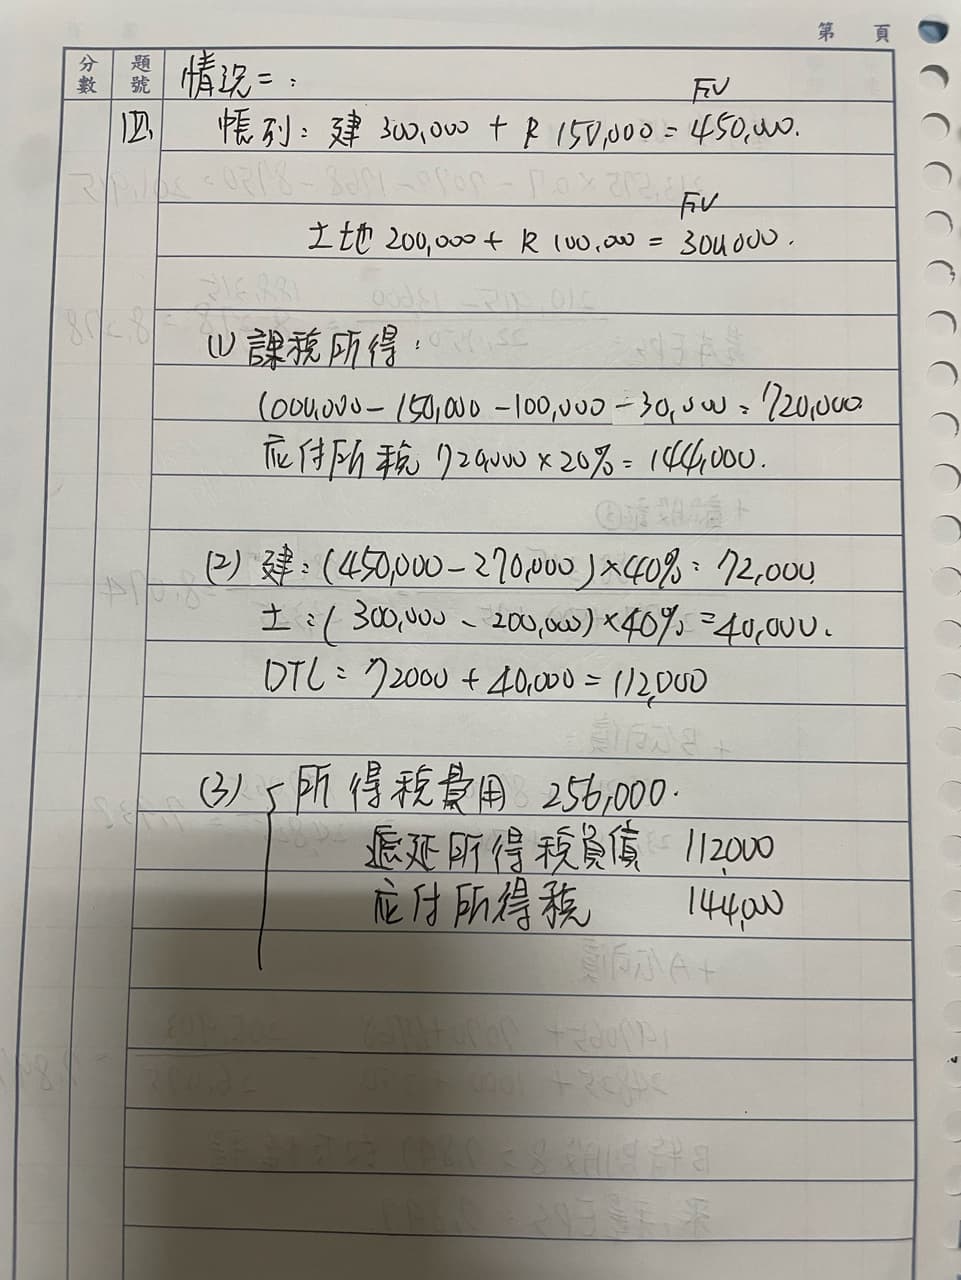 第 頁
分數 題號 情況二:
四、 帳列: 建 300,000 + R 150,000 = 450,000.
FV
土地 200,000 + R 100,000 = 300,000.
FV
(1) 課稅所得:
1000,000 - 150,000 - 100,000 - 30,000 = 720,000
应付所稅 720,000 × 20% = 144,000.
(2) 建: (450,000 - 270,000) × 40% = 72,000
土: (300,000 - 200,000) × 40% = 40,000.
DTL = 72000 + 40,000 = 112,000
(3) 所得稅費用 256,000.
遞延所得稅負債 112,000
应付所得稅 144,000